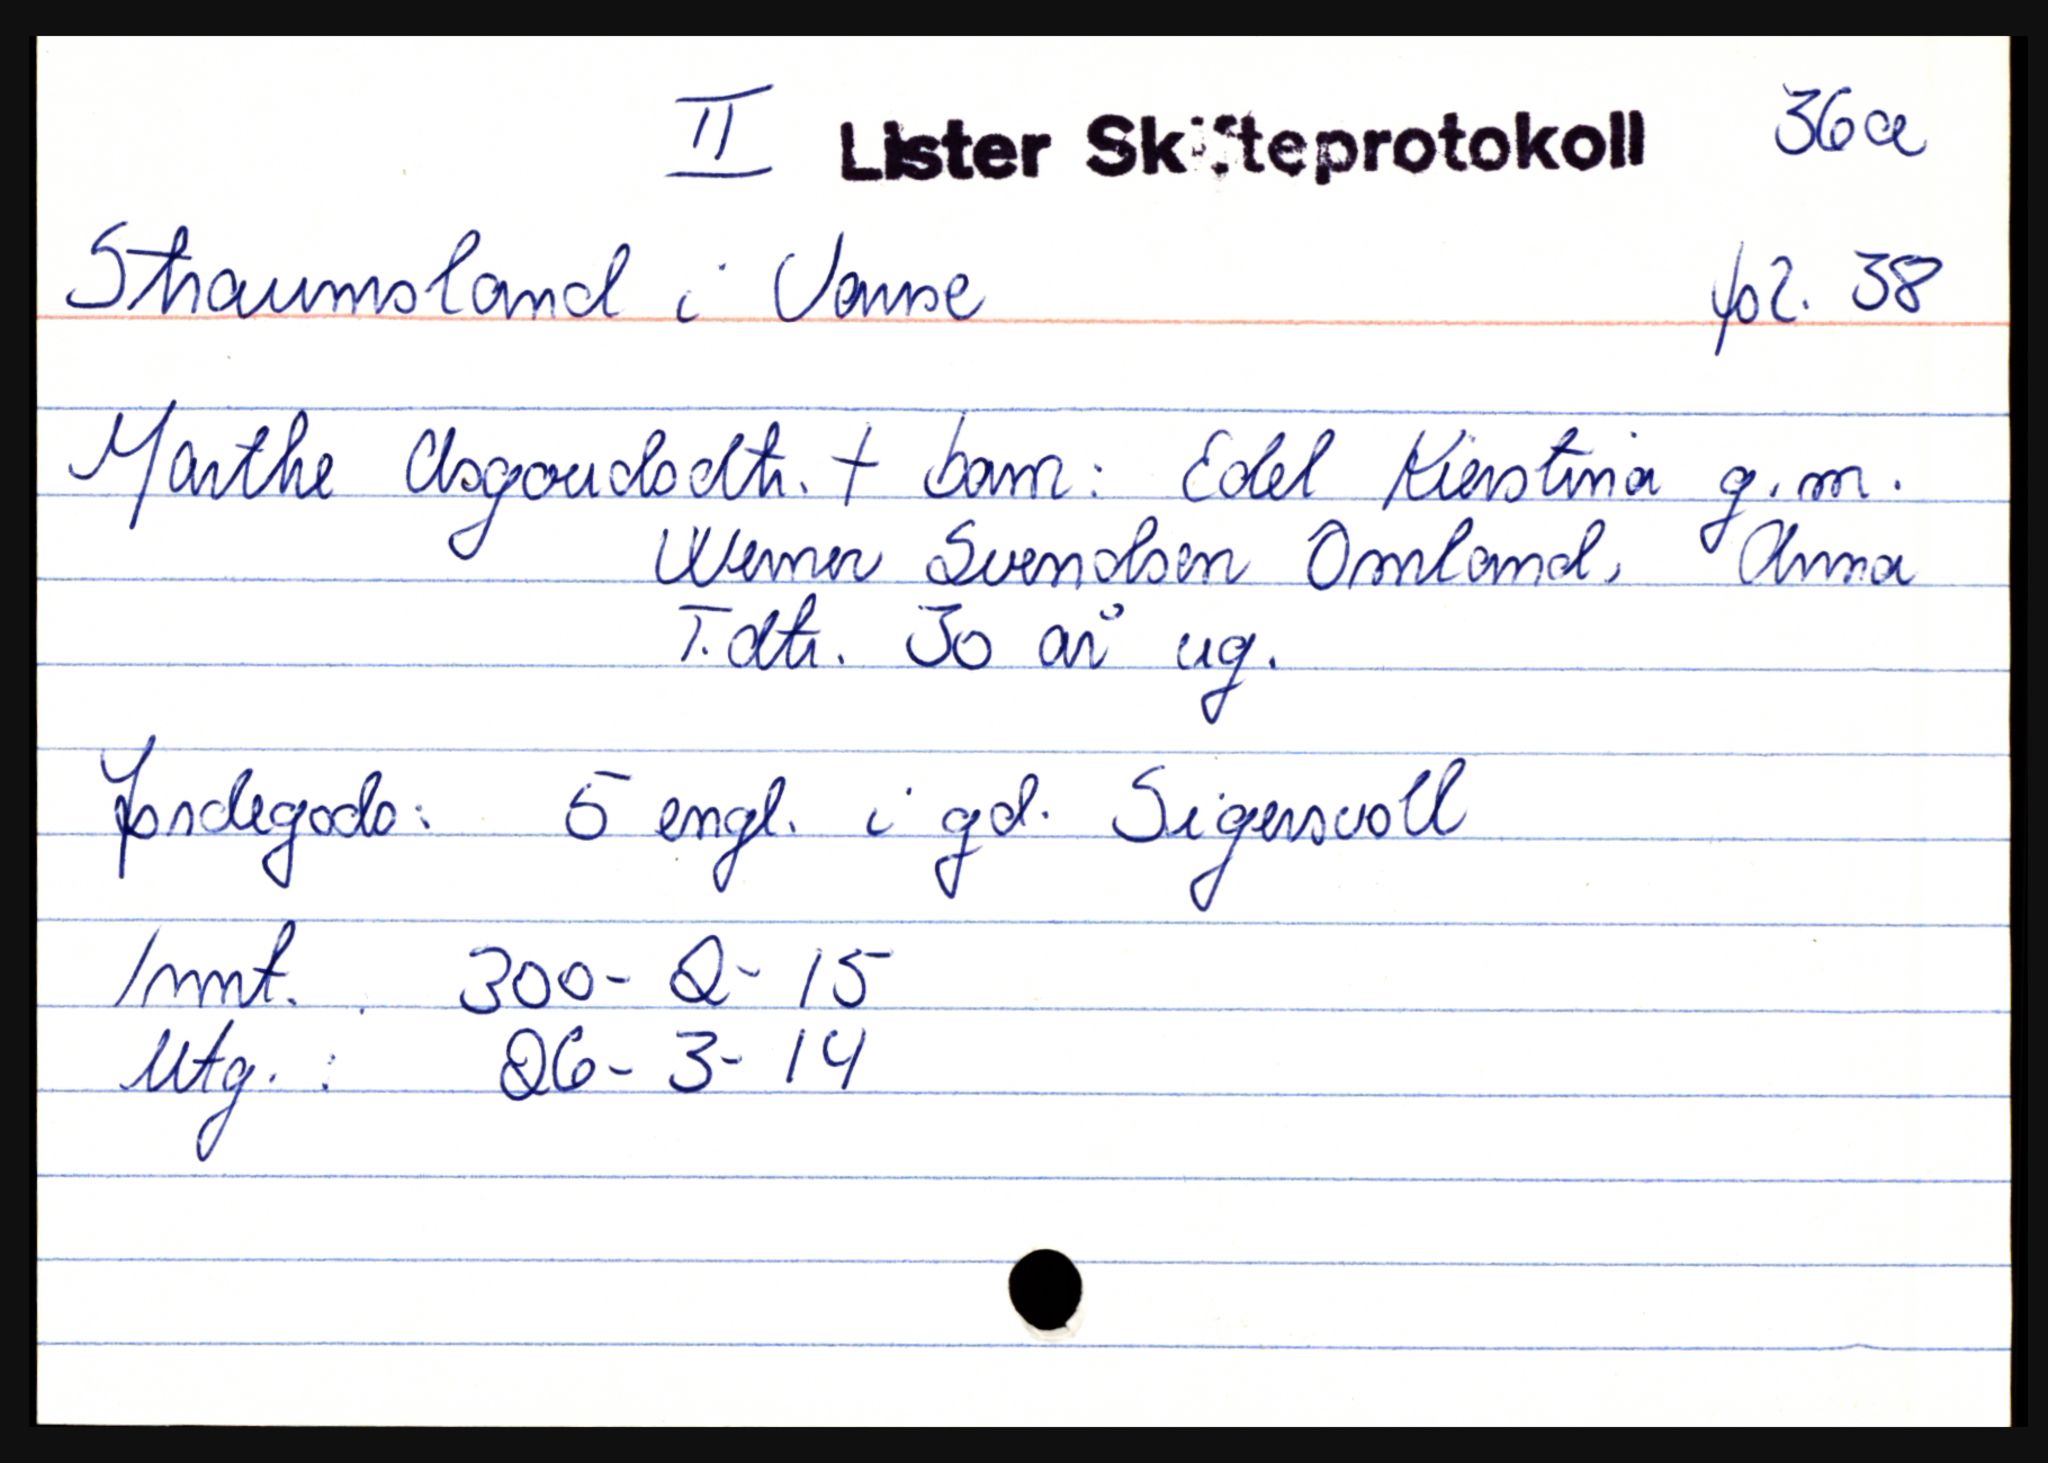 II Lister Skifteprotokoll 36a
Straumsland i Vanse fol. 38
Marthe Asgoudsdtr. + barn: Edel Kierstina g.m.
Werner Svendsen Omland, Anna
T.dtr. 30 år ug.
Jordegods: 5 engl. i gd. Sigersvoll
Innt. 300- 2- 15
Utg. : 26- 3- 14